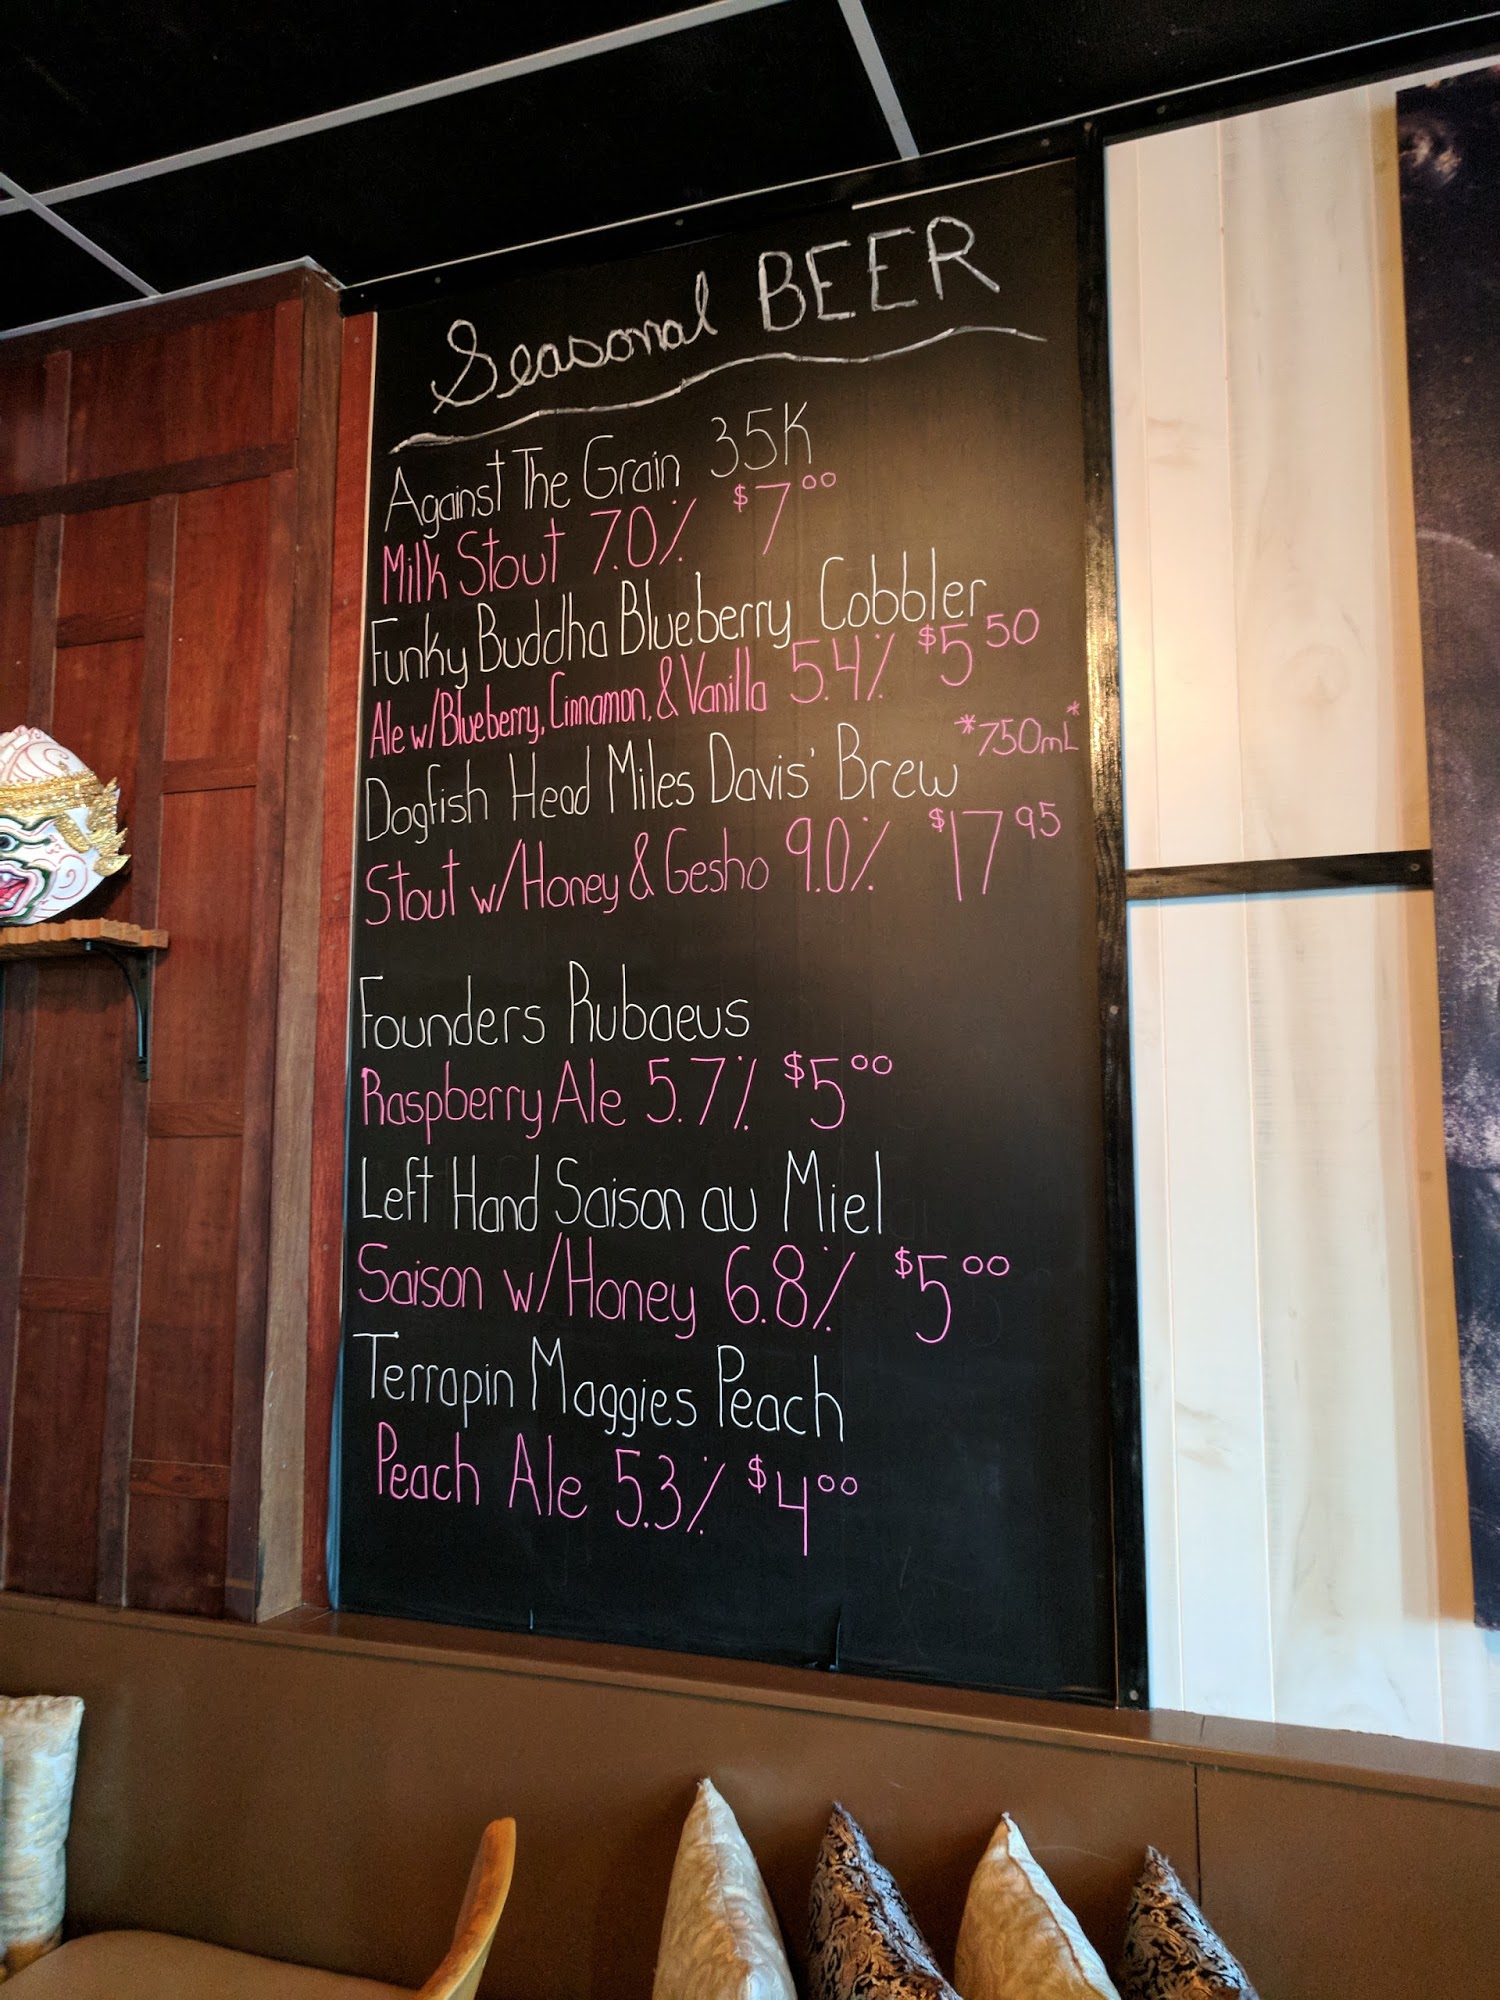 Seasonal BEER
Against The Grain 35K
Milk Stout 7.0% $7.00
Funky Buddha Blueberry Cobbler
Ale w/Blueberry, Cinnamon, & Vanilla 5.4% $5.50
Dogfish Head Miles Davis' Brew *750mL*
Stout w/Honey & Gesho 9.0% $17.95
Founders Rubaeus
Raspberry Ale 5.7% $5.00
Left Hand Saison au Miel
Saison w/Honey 6.8% $5.00
Terrapin Maggies Peach
Peach Ale 5.3% $4.00